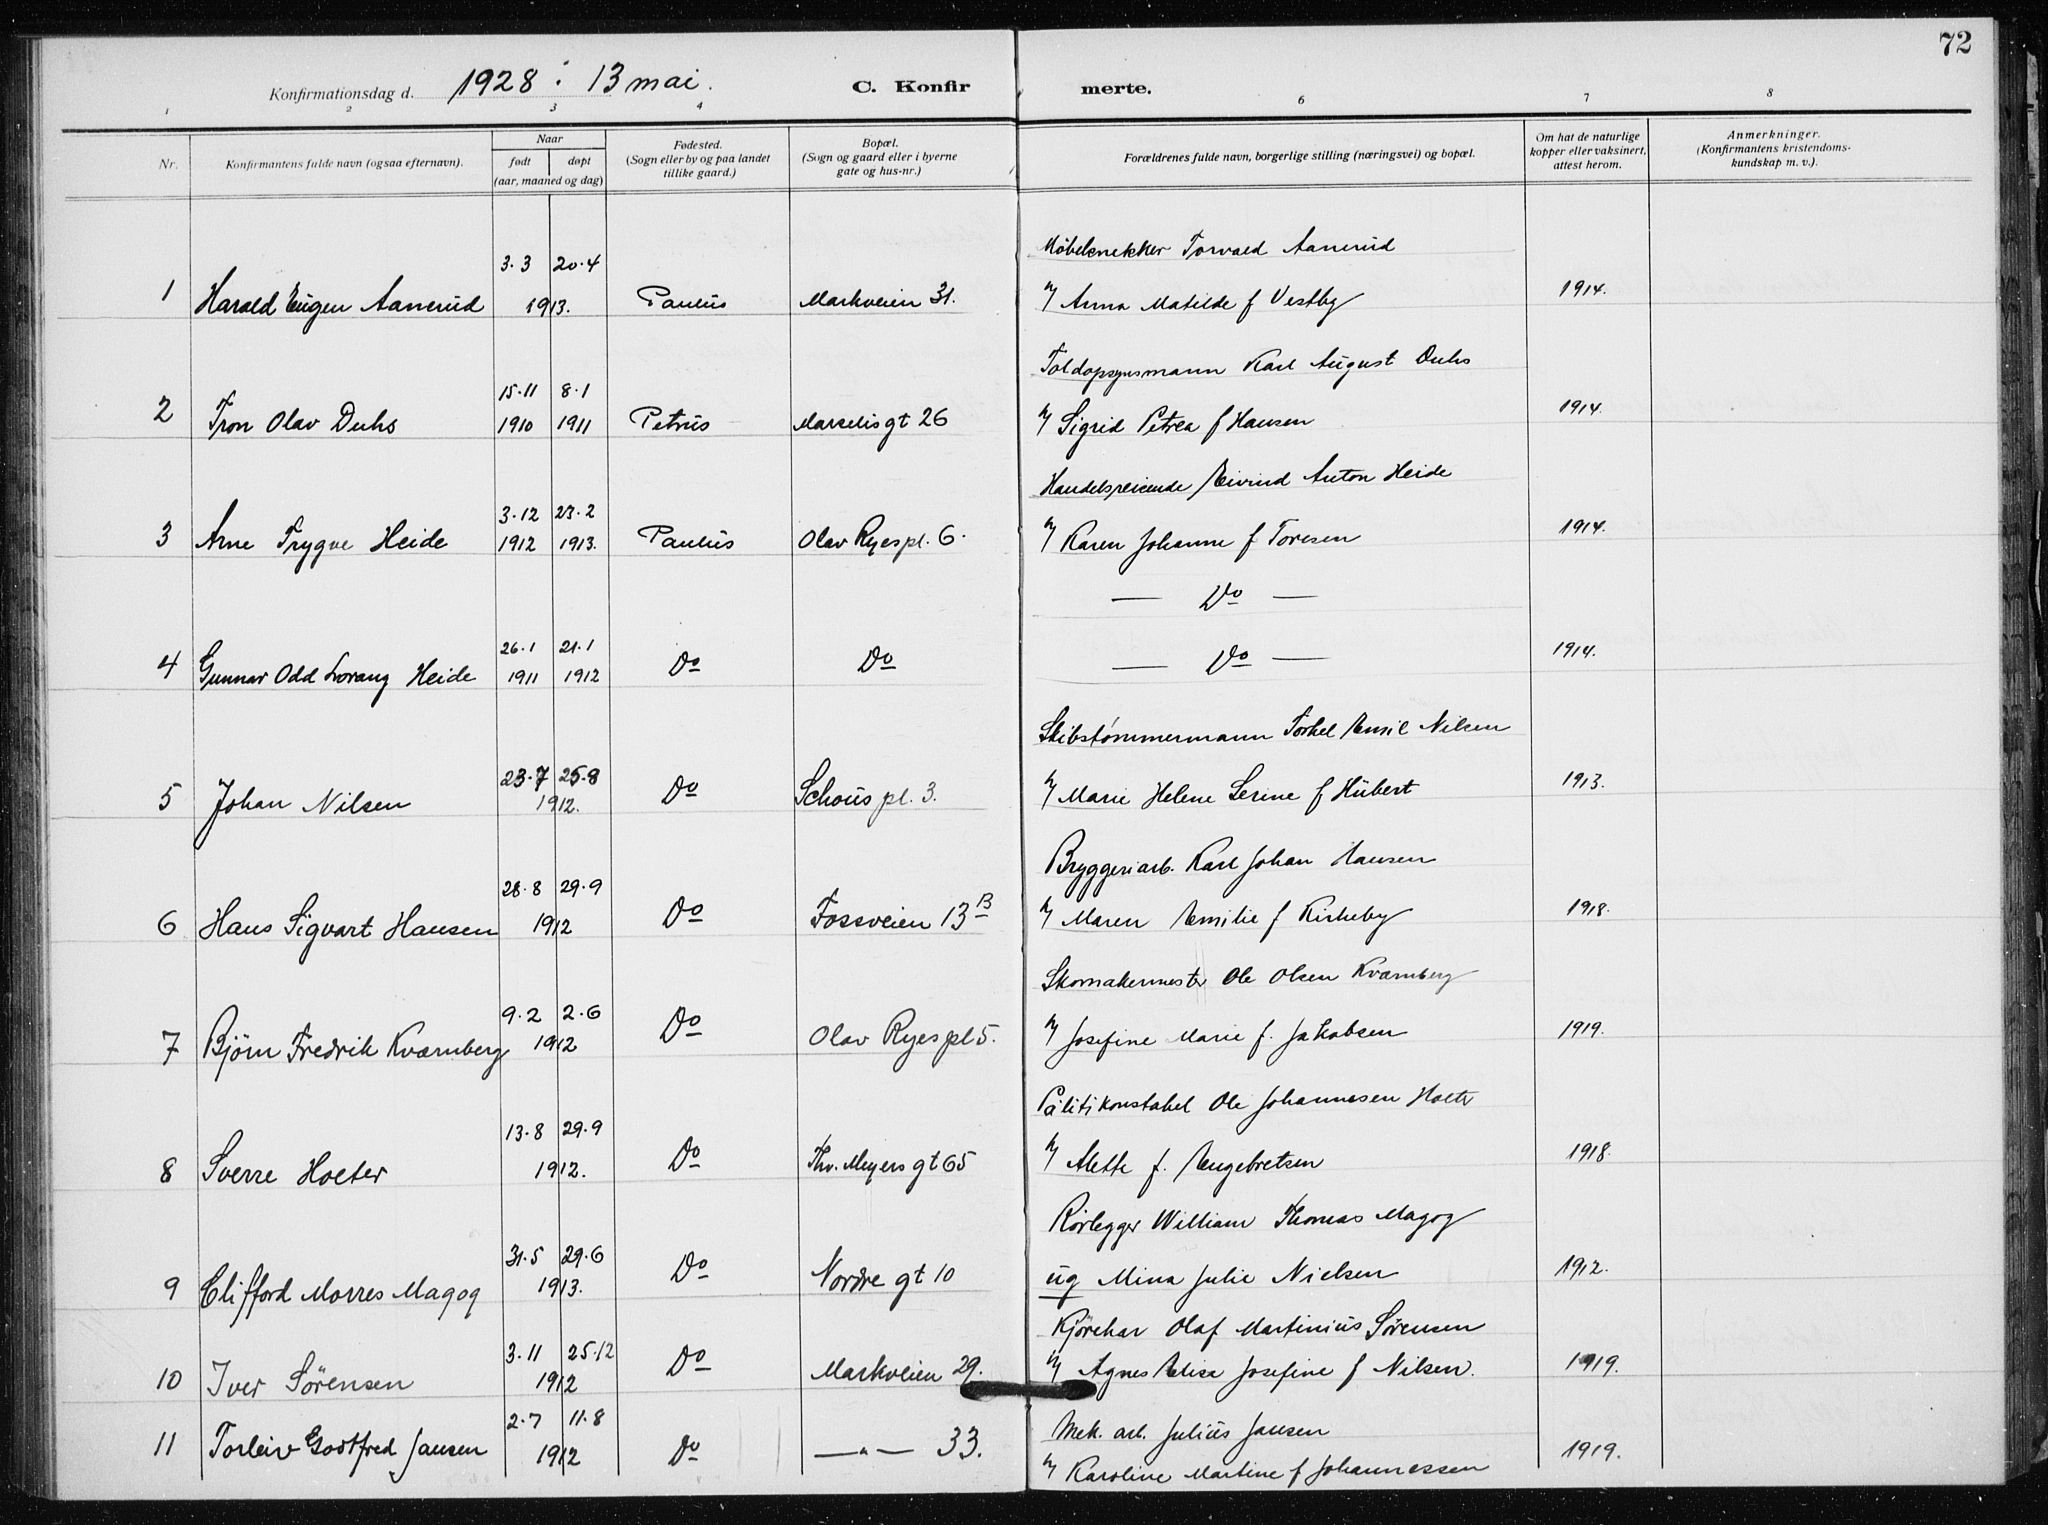 72
Konfirmationsdag d. 1928 : 13 mai. C. Konfirmerte.
1 2 3 4 6 7 8
Nr. Konfirmantens fulde navn (ogsaa efternavn). Naar født døpt (aar, maaned og dag) Fødested. (Sogn eller by og paa landet tillike gaard.) Bopæl. (Sogn og gaard eller i byerne gate og hus-nr.) Forældrenes fulde navn, borgerlige stilling (næringsvei) og bopæl. Om hat de naturlige kopper eller vaksinert, attest herom. Anmerkninger. (Konfirmantens kristendomskundskap m. v.).
Møbelsnekker Torvald Aanerud
3.3 20.4
1 Harald Eugen Aanerud 1913. Paulus Markveien 31. Anna Matilde f Vestby 1914.
Toldopsynsmann Karl August Duhs
15.11 8.1
2 Tron Olav Duhs 1910 1911 Petrus Marselisgt 26 Sigrid Petrea f Hansen 1914.
Handelsreisende Eivind Anton Heide
3.12 23.2
3 Arne Trygve Heide 1912 1913. Paulus Olav Ryes pl. 6. Karen Johanne f Toresen 1914.
— Do —
26.1 21.1
4 Gunnar Odd Lorang Heide 1911 1912 Do Do — Do — 1914.
Skibstømmermann Torkel Emil Nilsen
23.7 25.8
5 Johan Nilsen 1912. Do Schous pl. 3. Marie Helene Serine f Hübert 1913.
Bryggeriarb. Karl Johan Hansen
28.8 29.9
6 Hans Sigvart Hansen 1912 Do Fossveien 13 B Maren Emilie f Kirkeby 1918.
Skomakermester Ole Olsen Kværnberg
9.2 2.6
7 Bjørn Fredrik Kværnberg 1912 Do Olav Ryes pl 5. Josefine Marie f. Jakobsen 1919.
Politikonstabel Ole Johannesen Holter
13.8 29.9
8 Sverre Holter 1912. Do Thv. Meyers gt 65 Alette f. Engebretsen 1918.
Rørlegger William Thomas Magog
31.5 29.6
9 Clifford Morres Magog 1913. Do Nordre gt 10 ug Mina Julie Nielsen 1912.
Kjørekar Olaf Martinius Sørensen
3.11 25.12
10 Iver Sørensen 1912 Do Markveien 29. Agnes Elisa Josefine f Nilsen. 1919.
2.7 11.8 Mek. arb. Julius Jansen
11 Torleiv Godtfred Jansen 1912 Do — " — 33. Karoline Martine f Johannessen 1919.